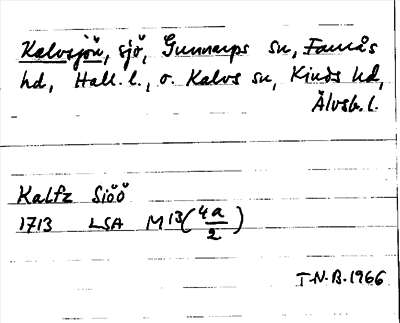 Kalvsjön, sjö, Gunnarps sn, Faurås
hd, Hall. l., o. Kalvs sn, Kinds hd,
Älvsb. l.
Kalfz Siöö
1713 LSA M13(4a/2)
T.N.B. 1966